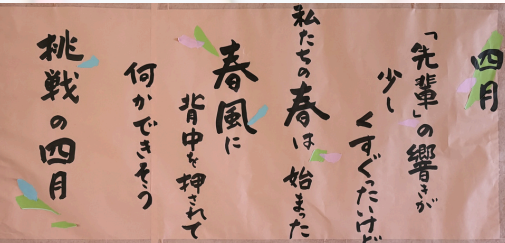 四月
「先輩」の響きが
少し
くすぐったいけど
私たちの春は 始まった
春風に
背中を押されて
何かできそう
挑戦の四月